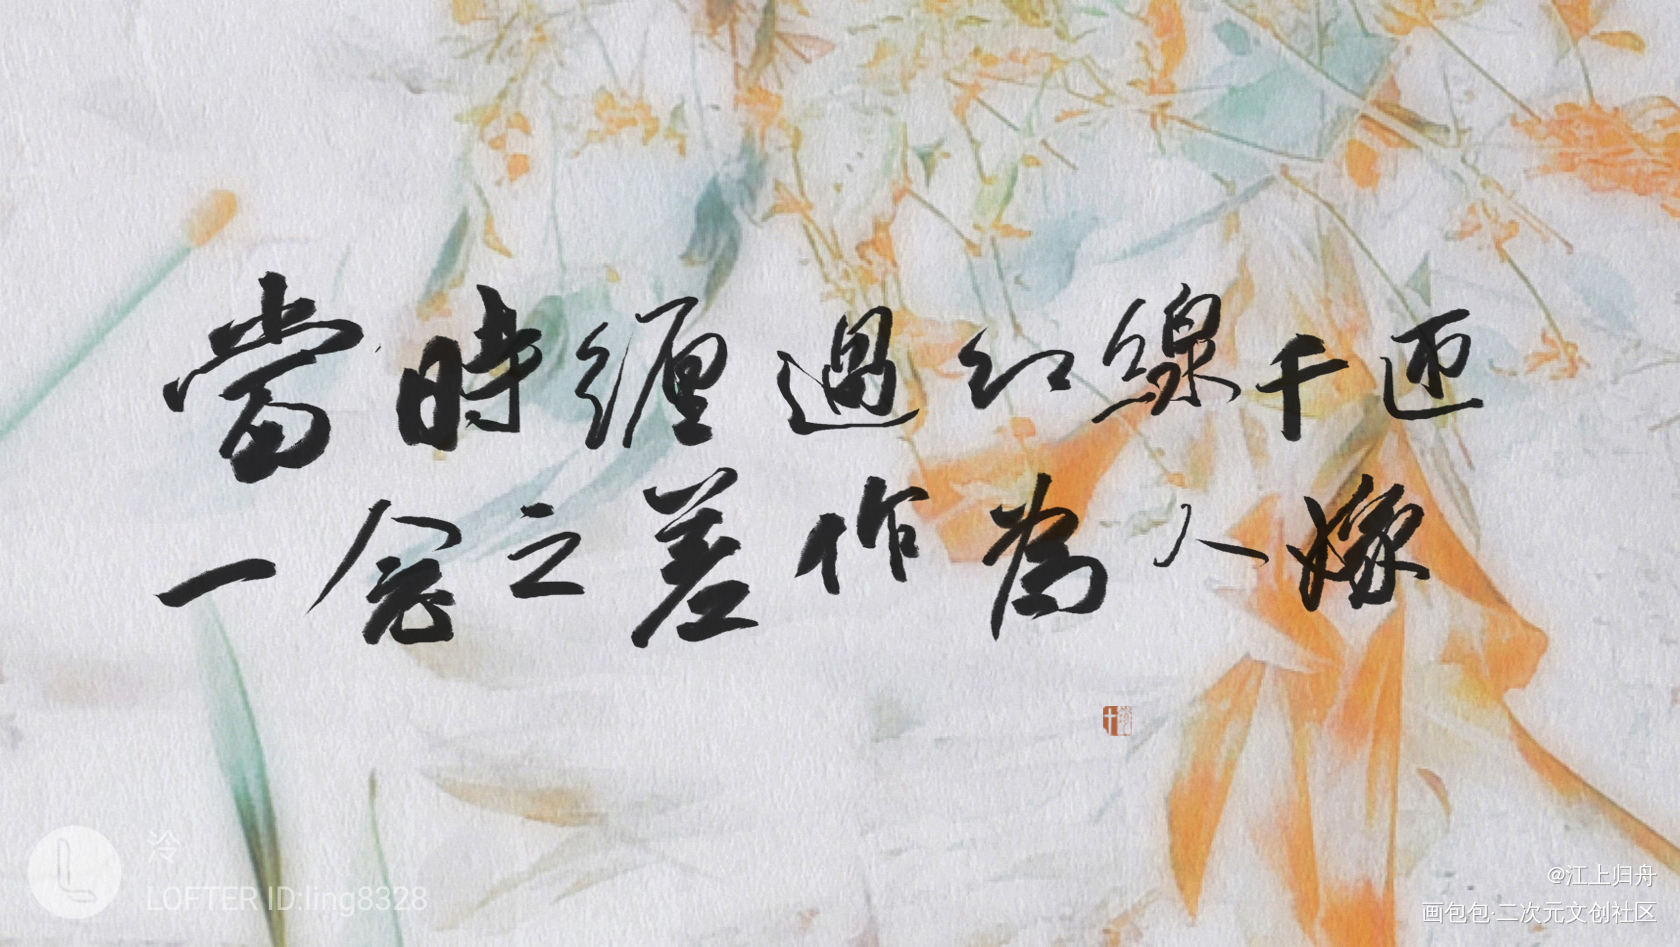 當時缠過红線千匝
一念之差作為人嫁
泠
LOFTER ID:ling8328
@江上归舟
画包包·二次元文创社区